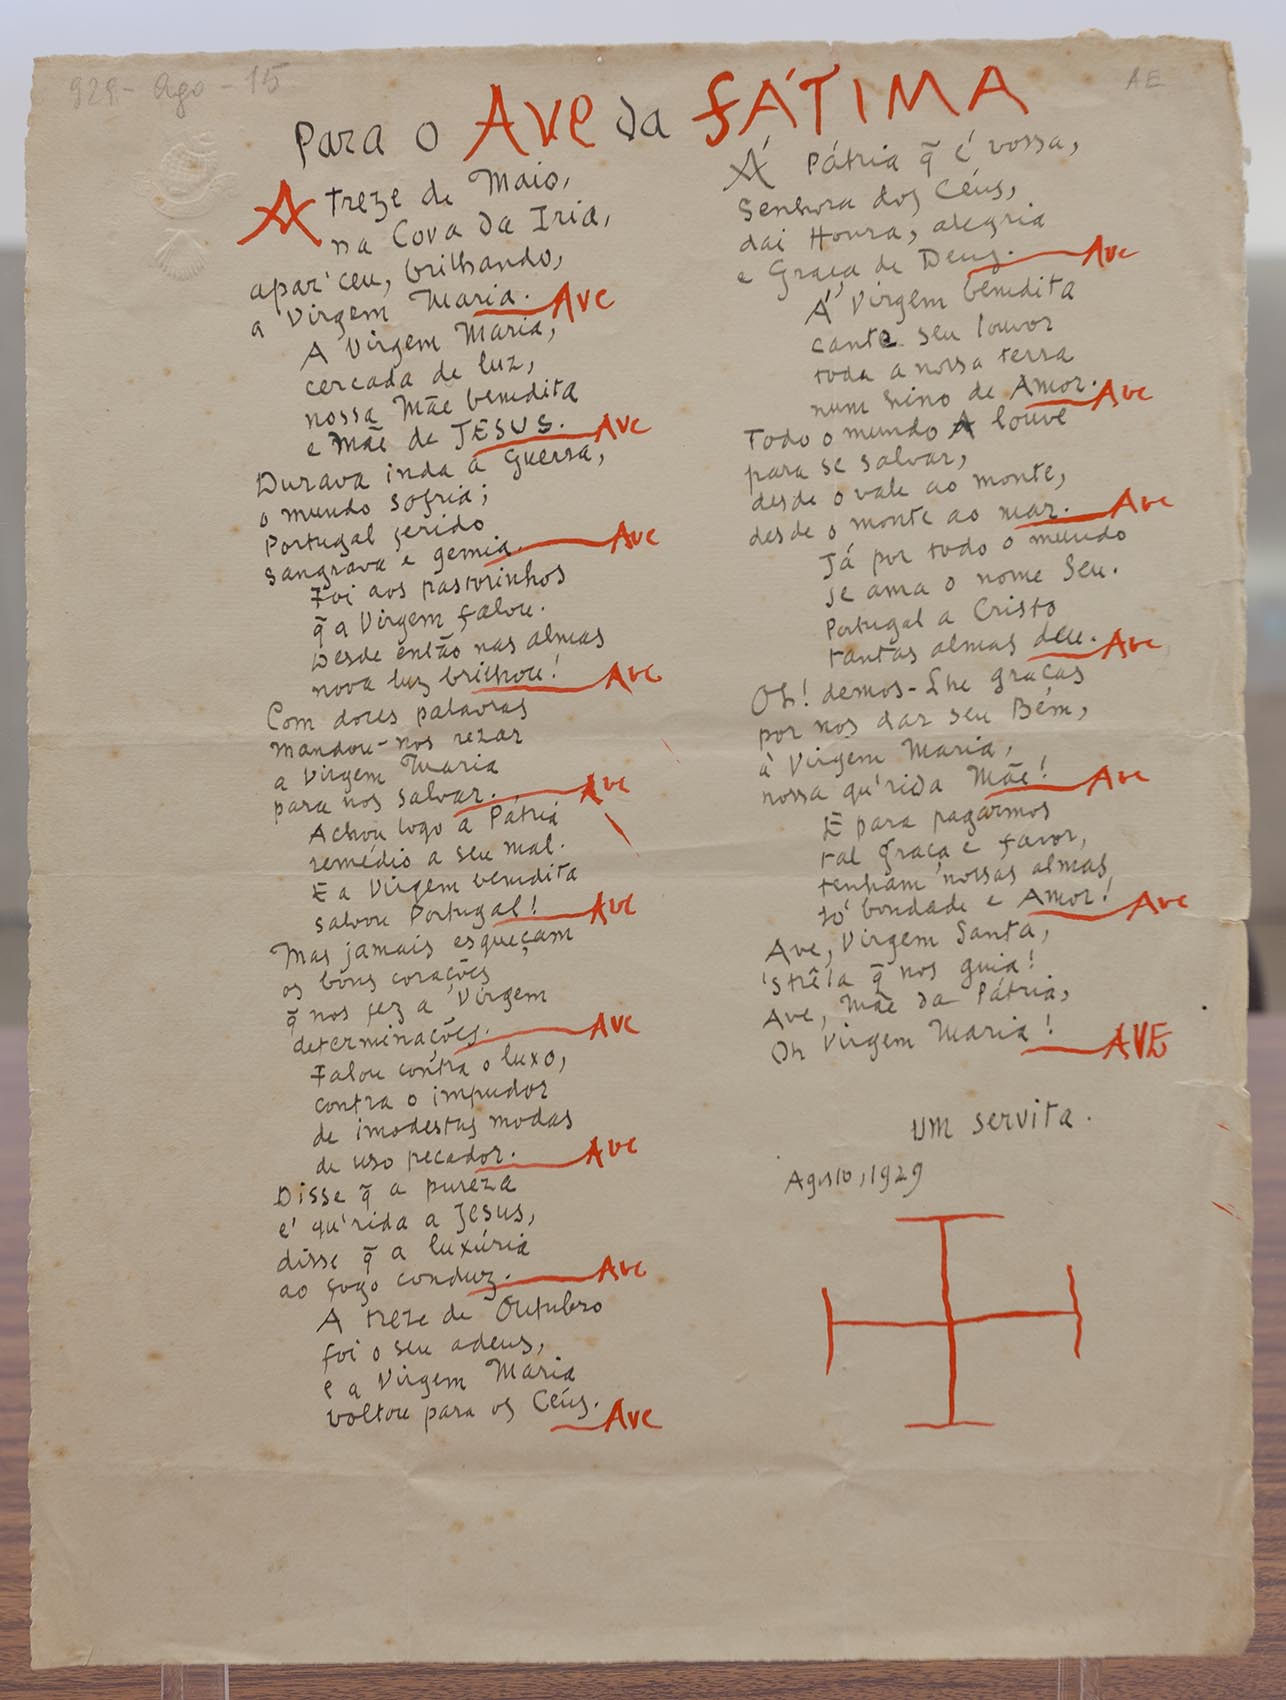 929 - Ago - 15
AE
Para o AVE da FÁTIMA
A treze de Maio,
na Cova da Iria,
apar'ceu, brilhando,
a Virgem Maria. Ave
A Virgem Maria,
cercada de luz,
nossa Mãe bendita
e Mãe de JESUS. Ave
Durava inda a guerra,
o mundo sofria;
Portugal ferido
sangrava e gemia. Ave
Foi aos pastorinhos
q̃ a Virgem falou.
Desde então nas almas
nova luz brilhou! Ave
Com doces palavras
mandou-nos rezar
a Virgem Maria
para nos salvar. Ave
Achou logo a Pátria
remédio a seu mal.
E a Virgem bendita
salvou Portugal! Ave
Mas jamais esqueçam
os bons corações
q̃ nos fez a Virgem
determinações. Ave
Falou contra o luxo,
contra o impudor
de imodestas modas
de uso pecador. Ave
Disse q̃ a pureza
é qu'rida a Jesus,
disse q̃ a luxúria
ao fogo conduz. Ave
A treze de Outubro
foi o seu adeus,
e a Virgem Maria
voltou para os Céus. Ave
Á Pátria q̃ é vossa,
Senhora dos Céus,
dai Honra, alegria
e Graça de Deus. Ave
Á Virgem bendita
cante seu louvor
toda a nossa terra
num hino de Amor. Ave
Todo o mundo A louve
para se salvar,
desde o vale ao monte,
desde o monte ao mar. Ave
Já por todo o mundo
se ama o nome Seu.
Portugal a Cristo
tantas almas deu. Ave
Oh! demos-Lhe graças
por nos dar seu Bém,
à Virgem Maria,
nossa qu'rida Mãe! Ave
E para pagarmos
tal graça e favor,
tenham nossas almas
só bondade e Amor! Ave
Ave, Virgem Santa,
'strêla q̃ nos guia!
Ave, Mãe da Pátria,
Oh Virgem Maria! AVE
Um servita.
Agosto, 1929